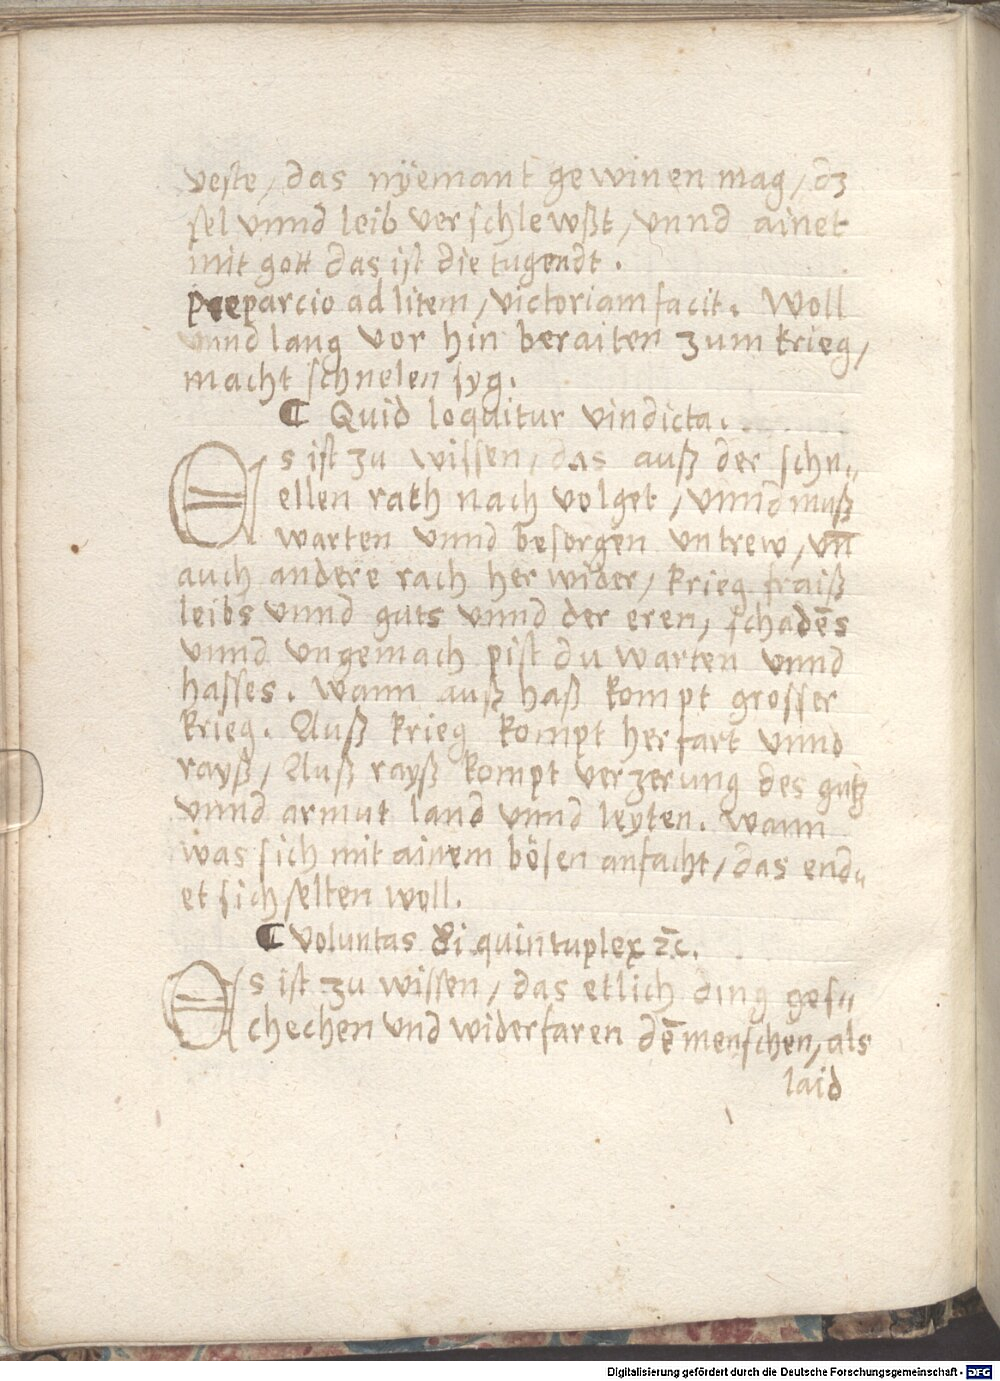 veste, das nÿemant gewinen mag, dz
sel vnnd leib verschlewßt, vnnd ainet
mit gott das ist die tugendt.
preparcio ad litem, victoriam facit. Woll
vnnd lang vor hin beraiten zum krieg,
macht schnelen syg.
¶ Quid loquitur vindicta.
Es ist zu wissen, das auß der schn„
ellen rath nach volget, vnnd muß
warten vnnd besorgen vntrew, vn̄
auch andere rach her wider, krieg fraiß
leibs vnnd guts vnnd der eren, schadēs
vnnd vngemach pist du warten vnnd
hasses. Wann auß haß kompt grosser
krieg. Auß krieg kompt herfart vnnd
rayß, Auß rayß kompt verzerung des gutz
vnnd armut land vnnd leyten. Wann
was sich mit ainem bösen anfacht, das end„
et sich selten woll.
¶ Voluntas di quintuplex ꝛc̄.
Es ist zu wissen, das etlich ding ges„
chechen vnd widerfaren dē menschen, als
laid
Digitalisierung gefördert durch die Deutsche Forschungsgemeinschaft - DFG